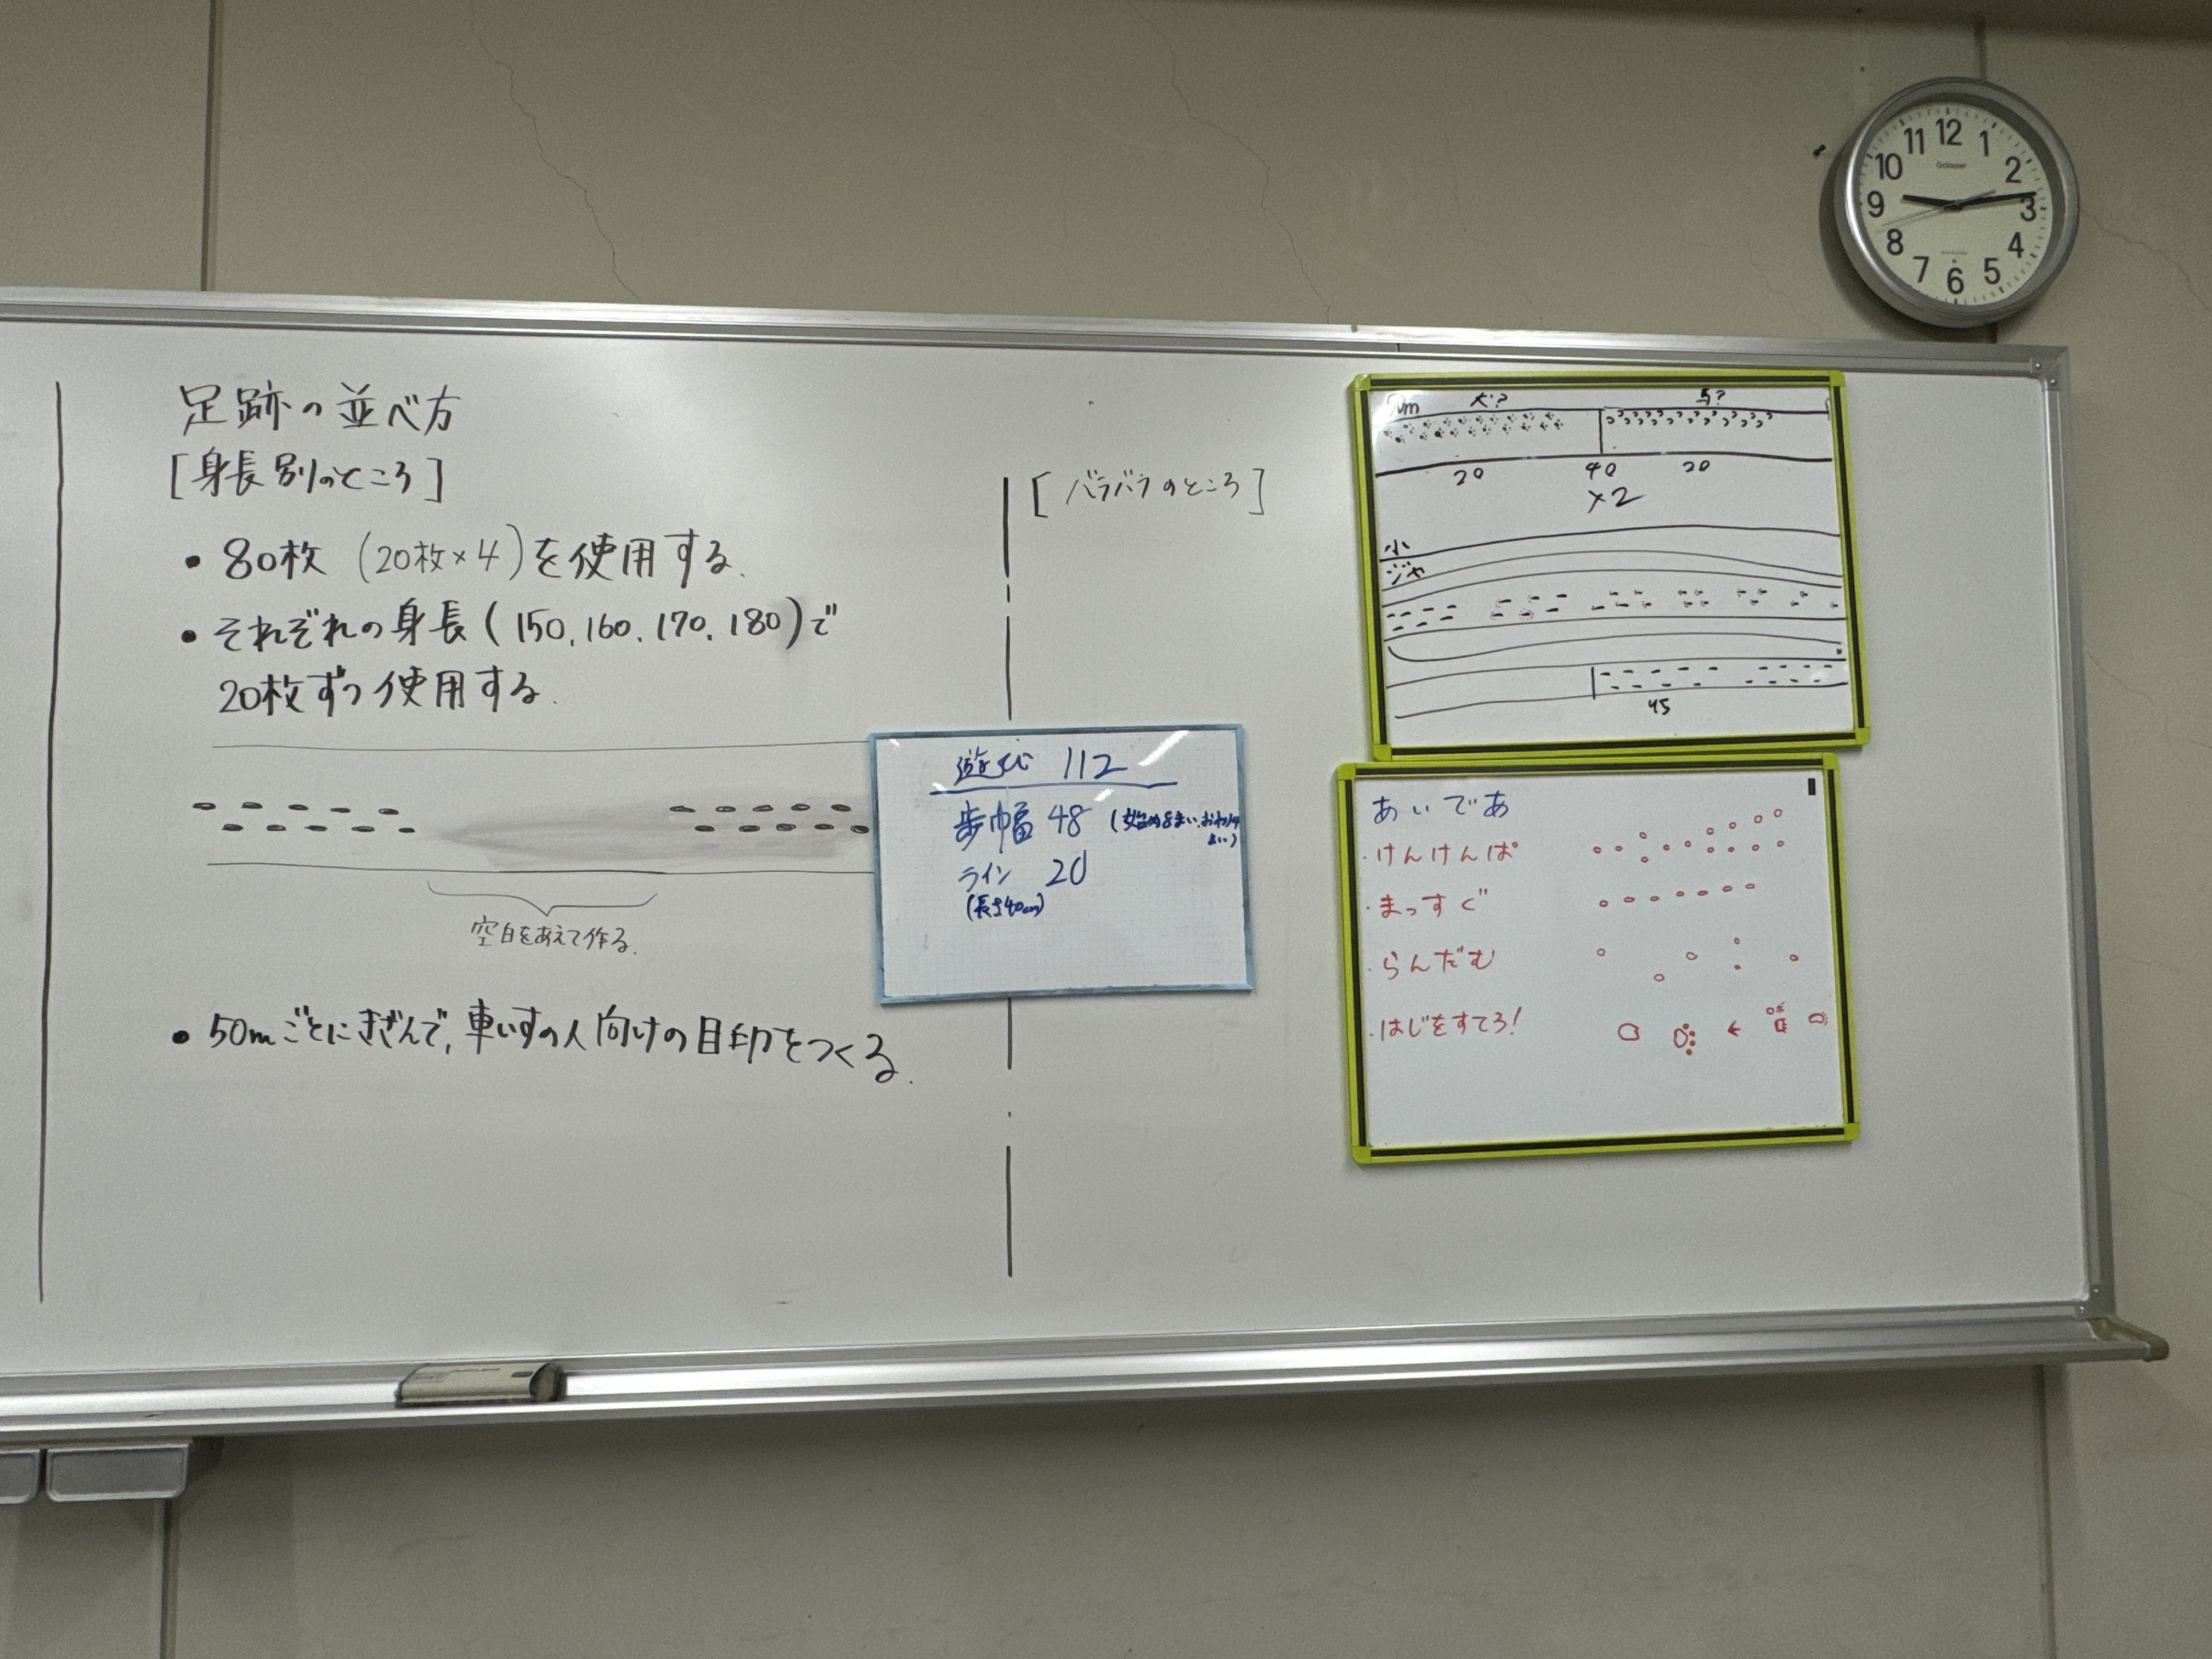 足跡の並べ方
[身長別のところ]
• 80枚 (20枚×4)を使用する.
• それぞれの身長(150,160,170,180)で
20枚ずつ使用する.
空白をあえて作る.
• 50mごとにきざんで,車いすの人向けの目印をつくる.
[バラバラのところ]
遊び 112
歩幅 48
ライン 20
(長さ40cm)
50m 犬? 馬?
20 40 20
×2
小
ジャ
45
あいであ
・けんけんぱ
・まっすぐ
・らんだむ
・はじをすてろ!
12
1
2
3
4
5
6
7
8
9
10
11